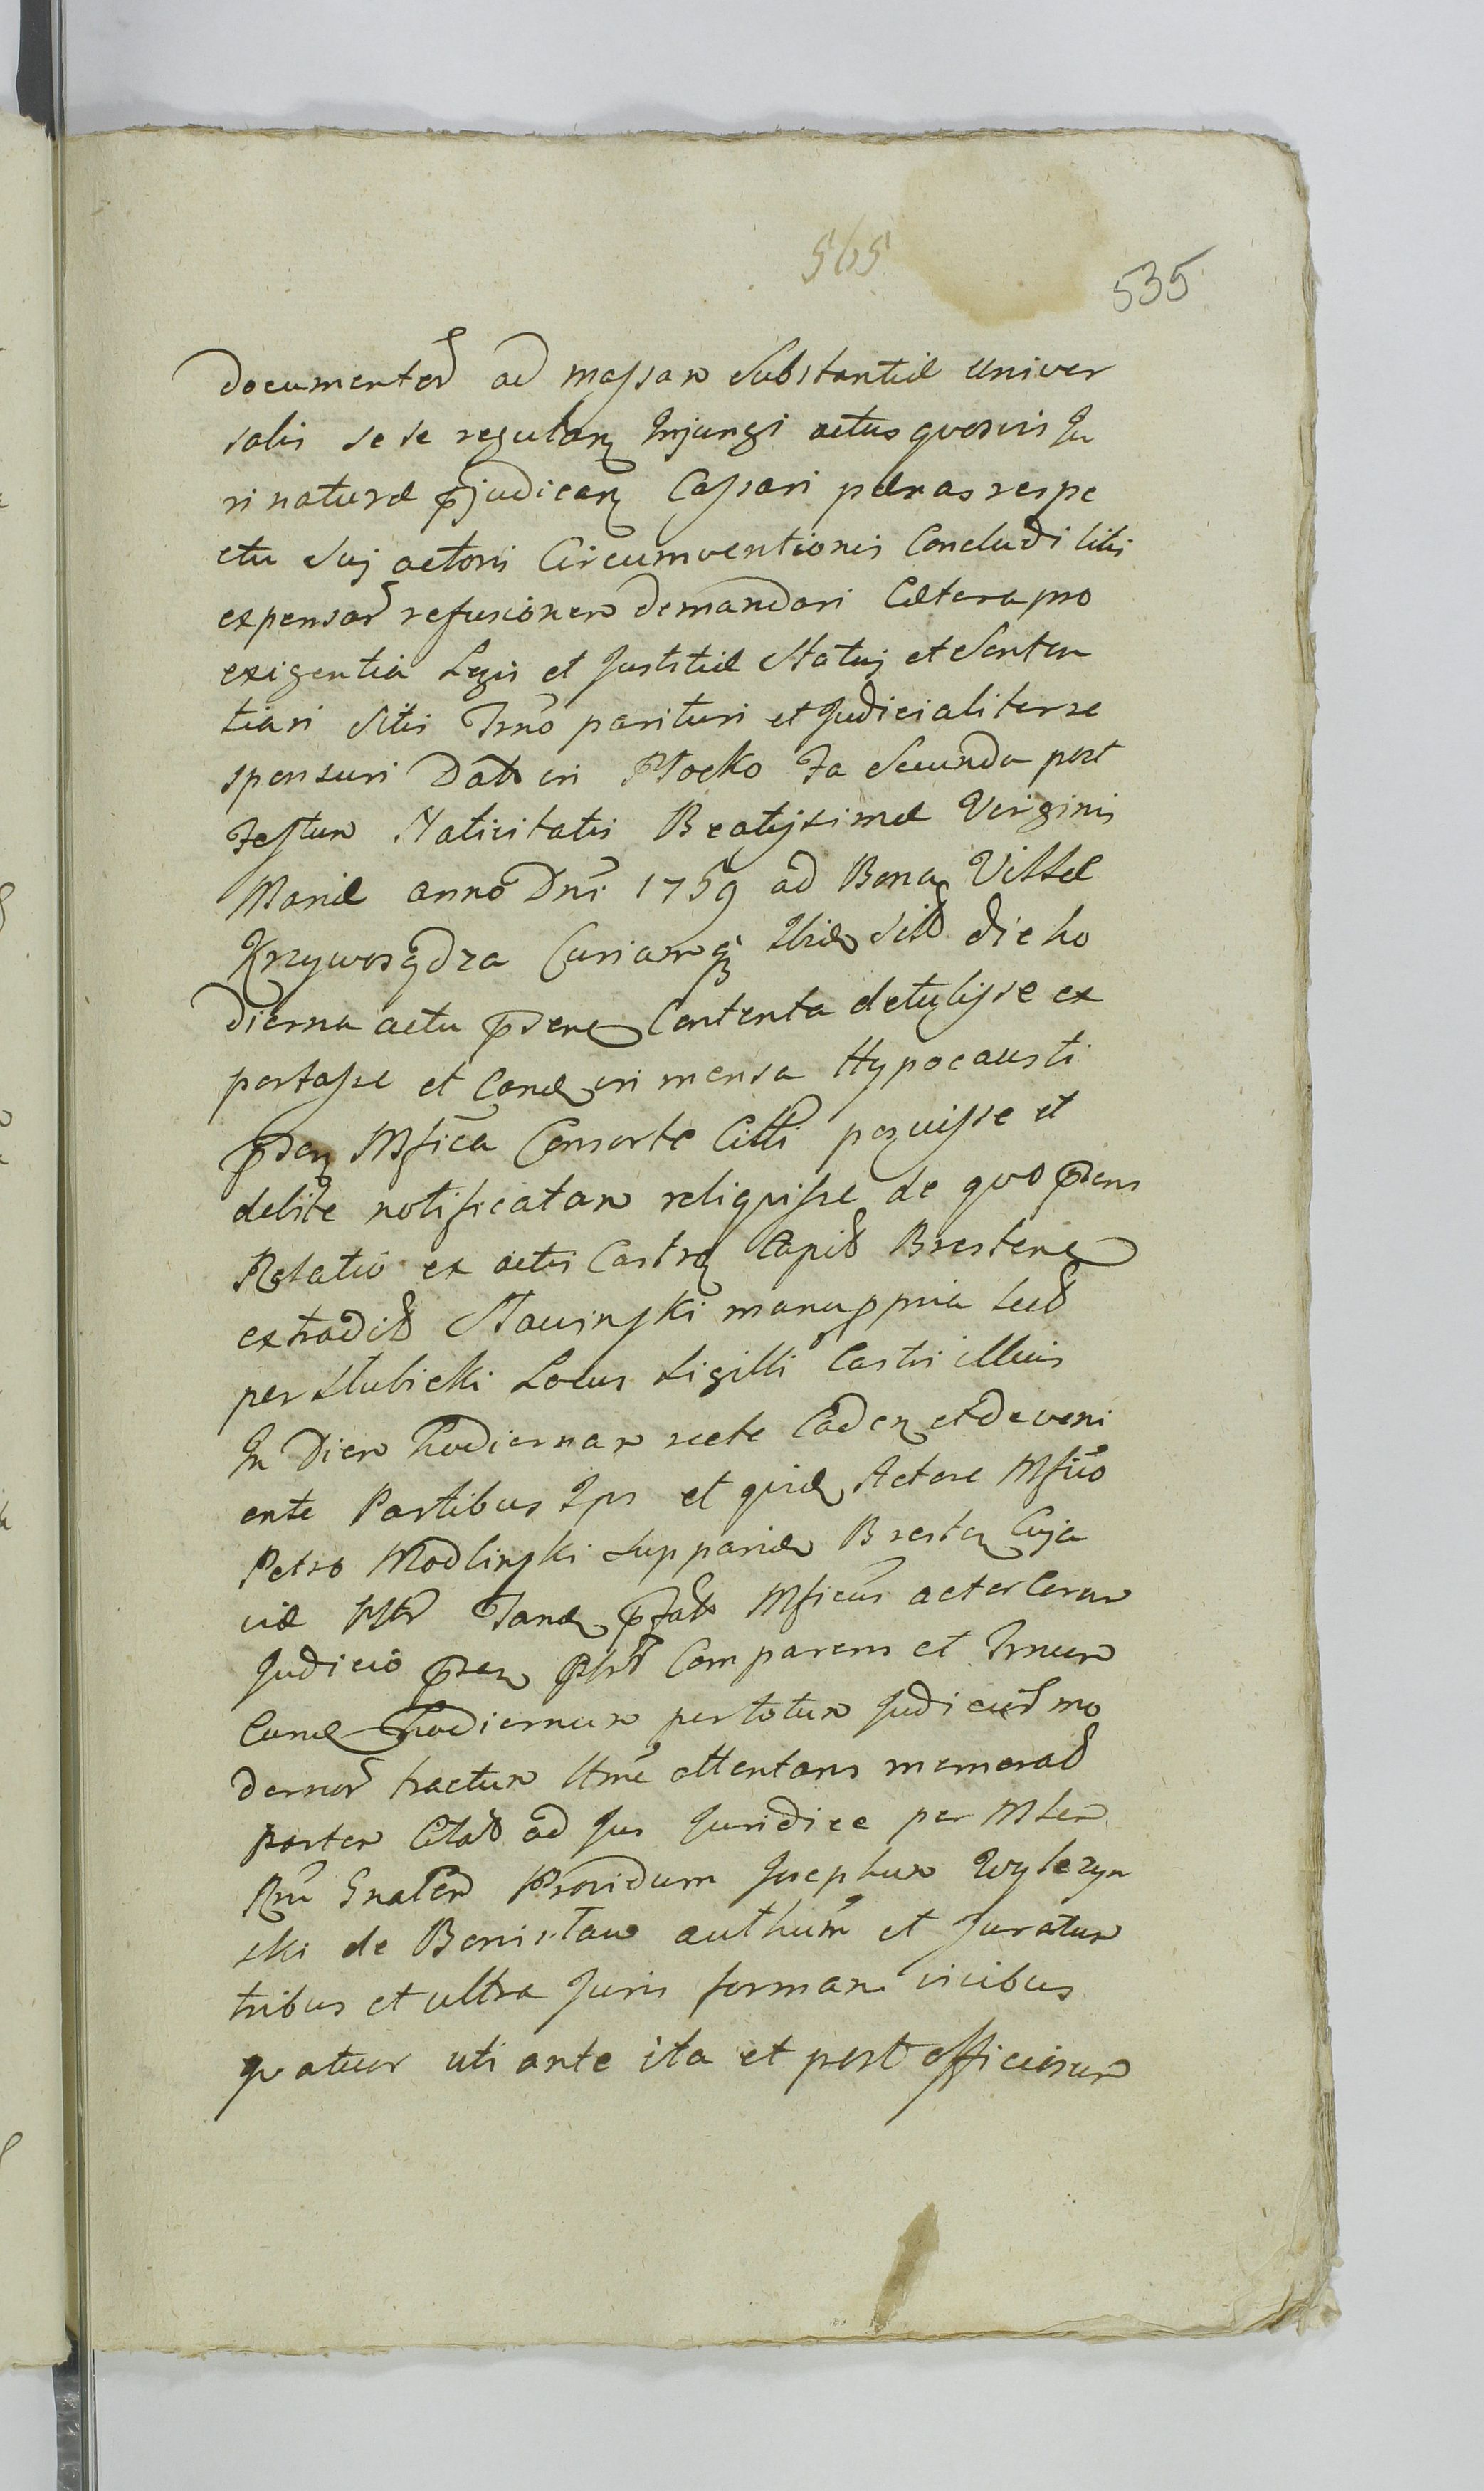 565
535
documentor ad massam Substantiæ Univer
salis sese regularq Injungi actus quosvis Ju
ri naturæ pjudicanq Cassari pænas respe
ctu Suj actoris Circumventionis Concludi litis
expensar refusionem demandari Cætera pro
exigentia Legis et Justitiæ Statuj et Senten
tiari Sitis Trno parituri et Judicialiter re
sponsuri Dat in Płocko Fa Secunda post
Festum Nativitatis Beatissimæ Virginis
Mariæ anno Dni 1759 ad Bona Villæ
Krzywosądza Curiamq Ibid Sit die ho
dierna actu psens Contenta detulisse ex
portasse et Cand in mensa Hypocausti
psen Mfica Consorte Citti posuisse et
debite notificatam reliquisse de quo psens
Relatio ex actis Castren Capit Bresten
extradit Stawinski manu ppria Lect
per Słubicki Locus Sigilli Castri illius
In Diem hodiernam recte Caden et deveni
ente Partibus Ips et quid Actore Mfico
Petro Modlinski Supparid Bresten Cuja
viæ Mtr Tand pfat Mficus actor Coram
Judicio psen Comparens et Trnum
Cund hodiernum per totum Judicior mo
dernor tractum ttme attentans memorat
partem Citat ad Jus Juridice per Mter
Rni Gnalem Providum Josephum Wyłezyn
ski de Benisław authum et Juratum
tribus et ultra Juris formam vicibus
quatuor uti ante ita et post officiosum